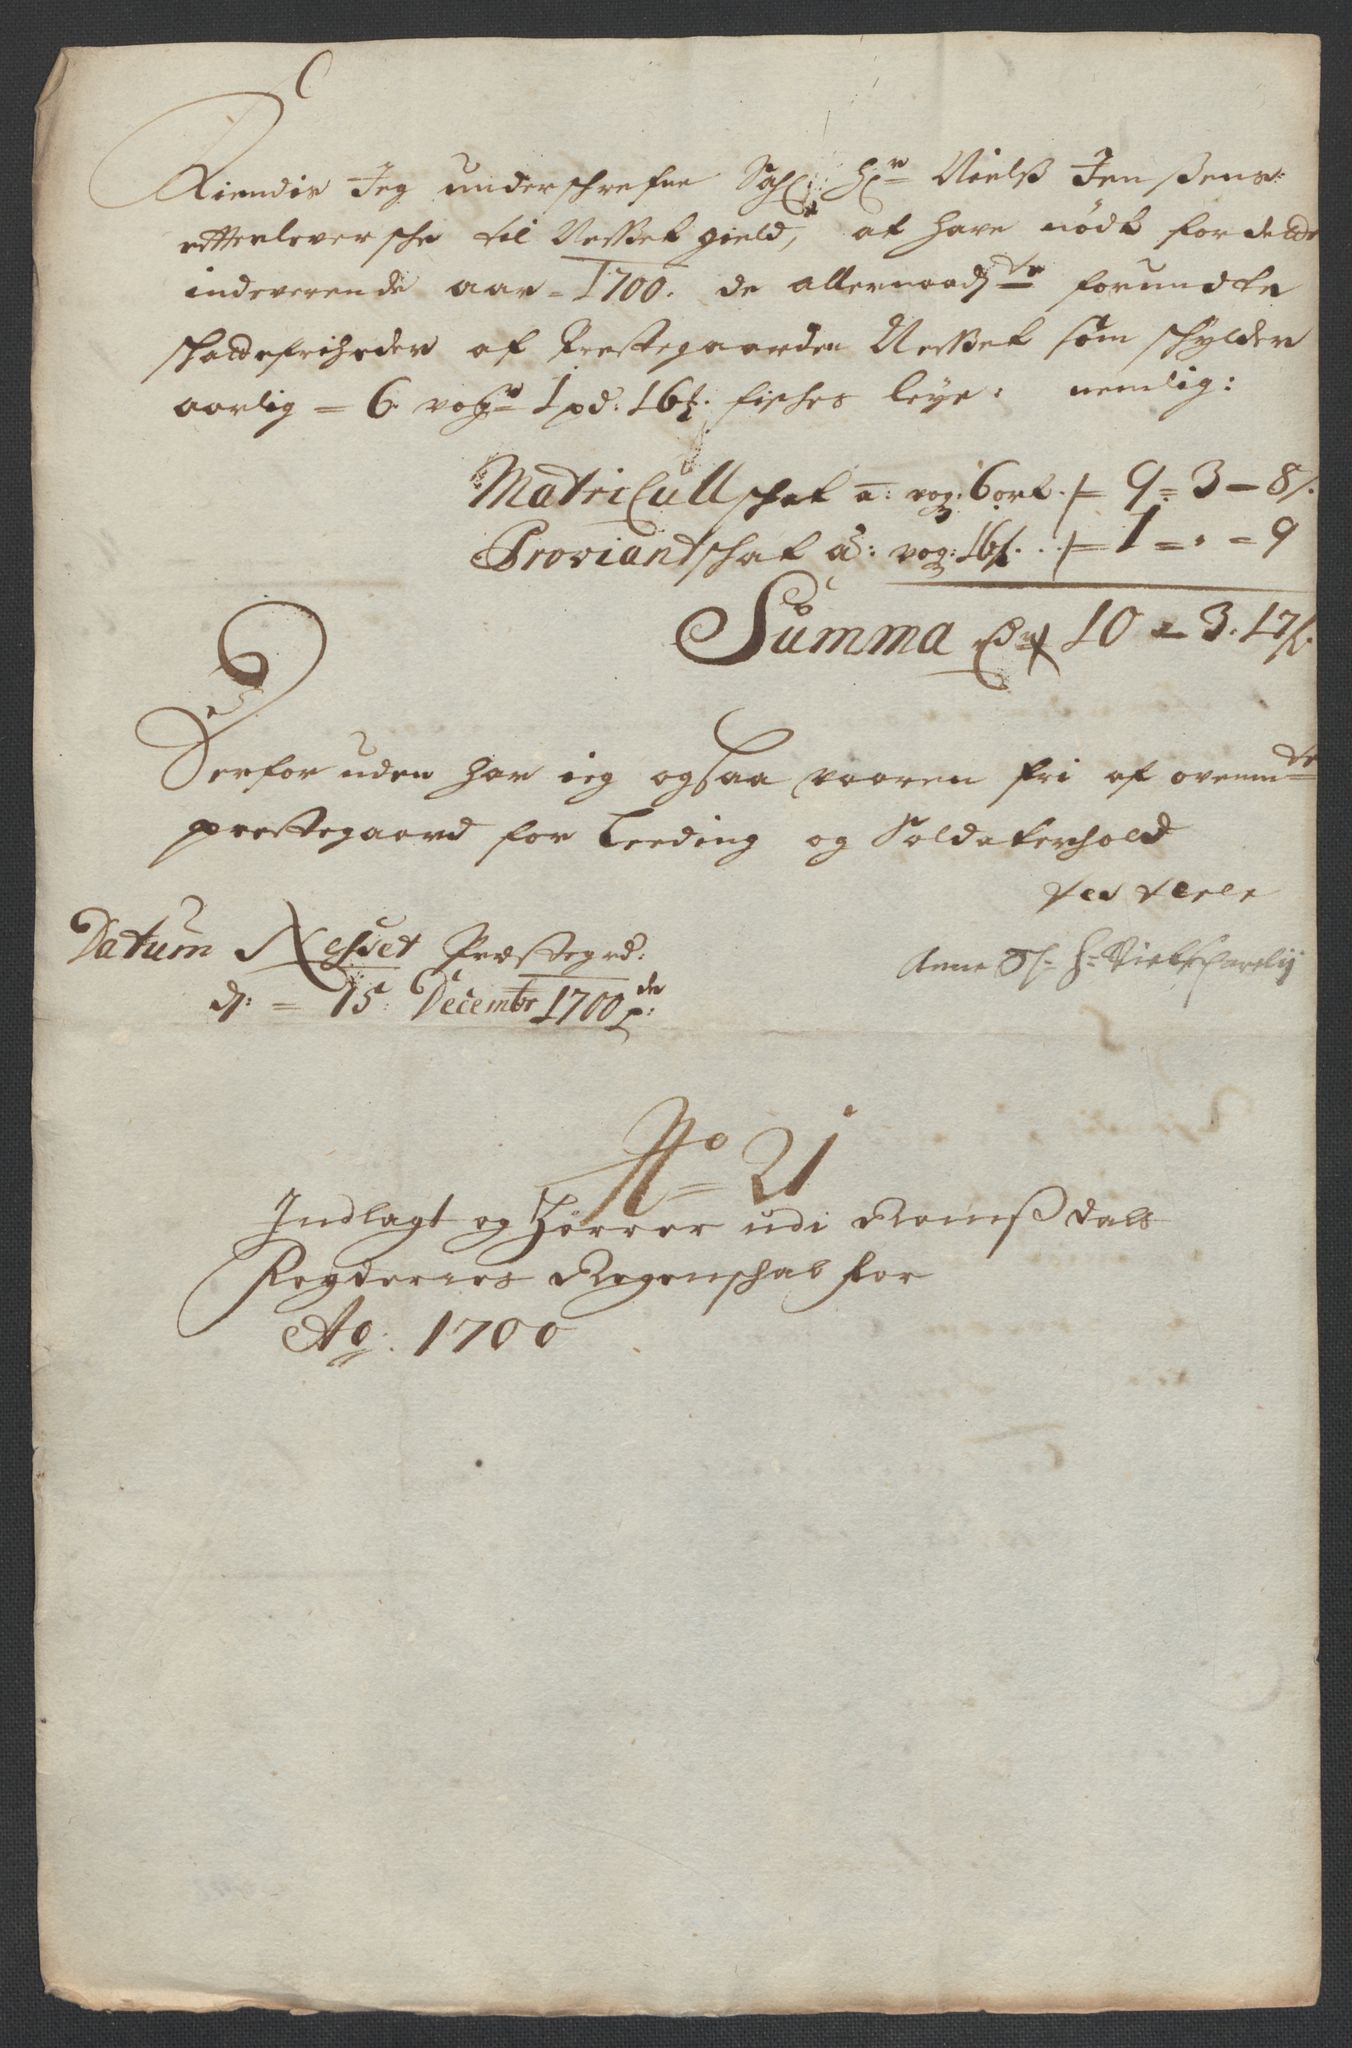 Kiendis Jeg underschrefne Sahl: Hr Nielß Jenßens
efterleversche til Neßet gield, at have nødt for dette
indeverende aar 1700. de allernaadste forundte
schattefriheder af Prestegaarden Neßet som schylder
aarlig = 6 voger 1 pd. 16 fisches leye: nemlig:
Matricull schat a: vog: 6 ort = 9 = 3 - 8 s.
Proviantschat a: vog: 16 s. = 1 = . = 9
Summa 10 = 3. 17 s.
Derfor uden har ieg ogsaa vaaren fri af ovenmte
prestegaard for Leeding og Soldaterhold
Datum Nesset Præstegrd:
d: = 15: Decembr 1700
Anne Sl. Hr Niels
No = 21
Indlagt og Hörrer udi Romßdals
Fogderies Regenschab for
Ao. 1700